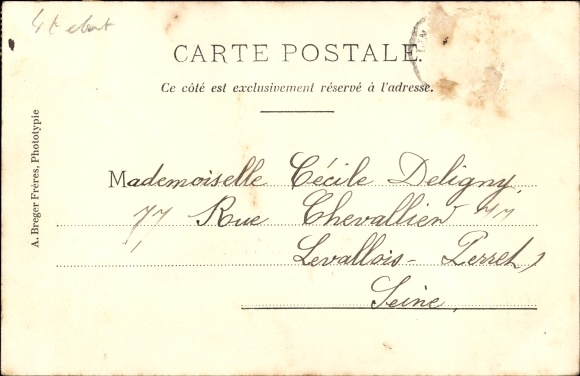 CARTE POSTALE.
Ce côté est exclusivement réservé à l'adresse.
A. Breger Frères, Phototypie
Mademoiselle Cécile Deligny
77 Rue Chevallier 77
Levallois-Perret
Seine